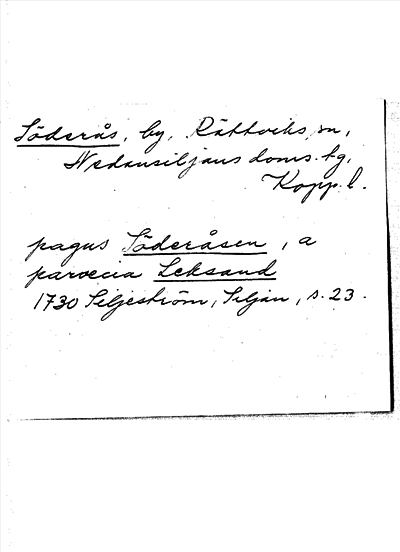 Söderås, by, Rättviks sn,
Nedansiljans doms. tg,
Kopp. l.
pagus Söderåsen, a
paroecia Leksand
1730 Siljeström, Siljan, s. 23.